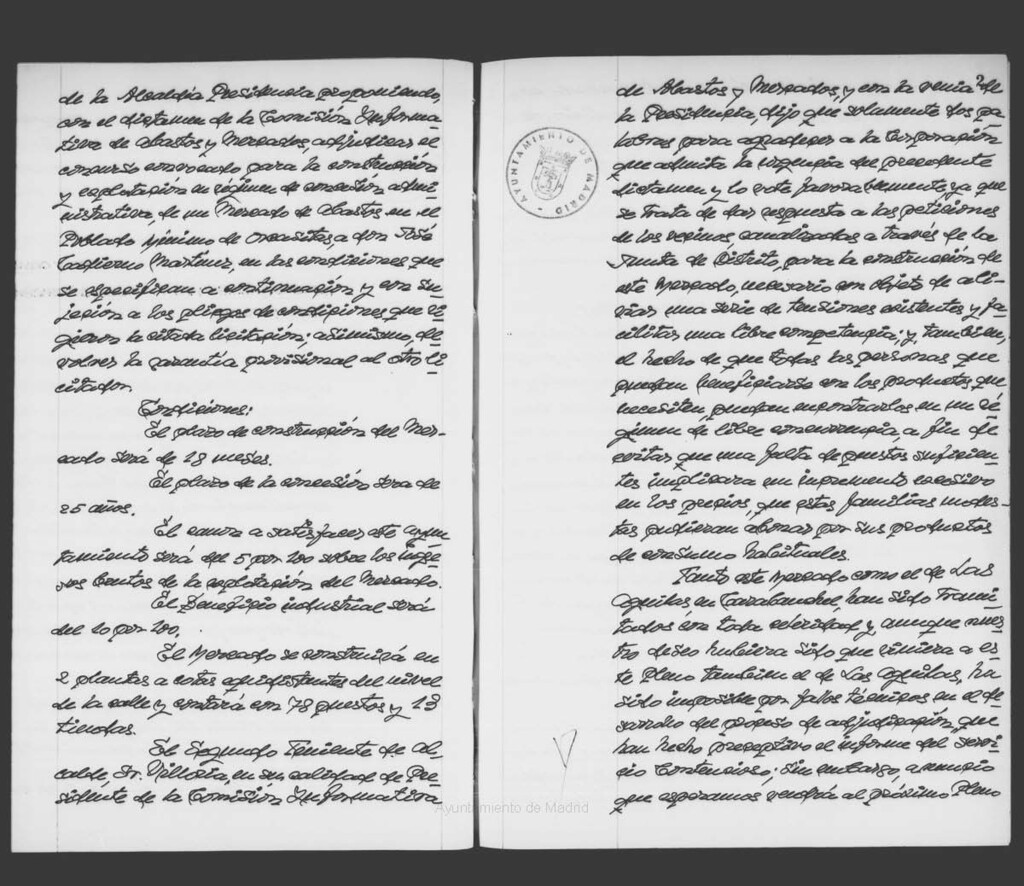 de la Alcaldía Presidencia proponiendo,
con el dictamen de la Comisión Informa-
tiva de Abastos y Mercados, adjudicar el
concurso convocado para la construcción
y explotación en régimen de concesión admi-
nistrativa, de un Mercado de Abastos en el
Poblado Mínimo de Orcasitas, a don José
Martínez, en las condiciones que
se especifican a continuación y con su-
jeción a los pliegos de condiciones que ri-
gieron la citada licitación; asimismo, de-
volver la garantía provisional al otro li-
citador.
Condiciones:
El plazo de construcción del Mer-
cado será de 18 meses.
El plazo de la concesión será de
25 años.
El canon a satisfacer a este Ayun-
tamiento será del 5 por 100 sobre los ingre-
sos brutos de la explotación del Mercado.
El Beneficio industrial será
del 10 por 100.
El Mercado se construirá en
2 plantas a cotas equidistantes del nivel
de la calle y contará con 78 puestos y 13
tiendas.
El Segundo Teniente de Al-
calde, Sr. Villoria, en su calidad de Pre-
sidente de la Comisión Informativa
AYUNTAMIENTO DE MADRID
de Abastos y Mercados, y con la venia de
la Presidencia, dijo que solamente dos pa-
labras para agradecer a la Corporación
que admita la urgencia del precedente
dictamen y lo vote favorablemente, ya que
se trata de dar respuesta a las peticiones
de los vecinos canalizadas a través de la
Junta de Distrito, para la construcción de
este Mercado, necesario con objeto de ali-
viar una serie de tensiones existentes y fa-
cilitar una libre competencia; y también,
el hecho de que todas las personas que
puedan beneficiarse con los productos que
necesiten, puedan encontrarlos en un ré-
gimen de libre concurrencia, a fin de
evitar que una falta de puestos suficien-
tes implicara un incremento excesivo
en los precios, que estas familias modes-
tas pudieran abonar por sus productos
de consumo habituales.
Tanto este Mercado como el de Las
Aguilas en Carabanchel, han sido trami-
tados con toda celeridad y, aunque nues-
tro deseo hubiera sido que viniera a es-
te Pleno también el de Las Aguilas, ha
sido imposible por fallos técnicos en el de-
sarrollo del proceso de adjudicación, que
han hecho preceptivo el informe del Servi-
cio Contencioso; sin embargo, anuncio
que esperamos vendrá al próximo Pleno
Ayuntamiento de Madrid